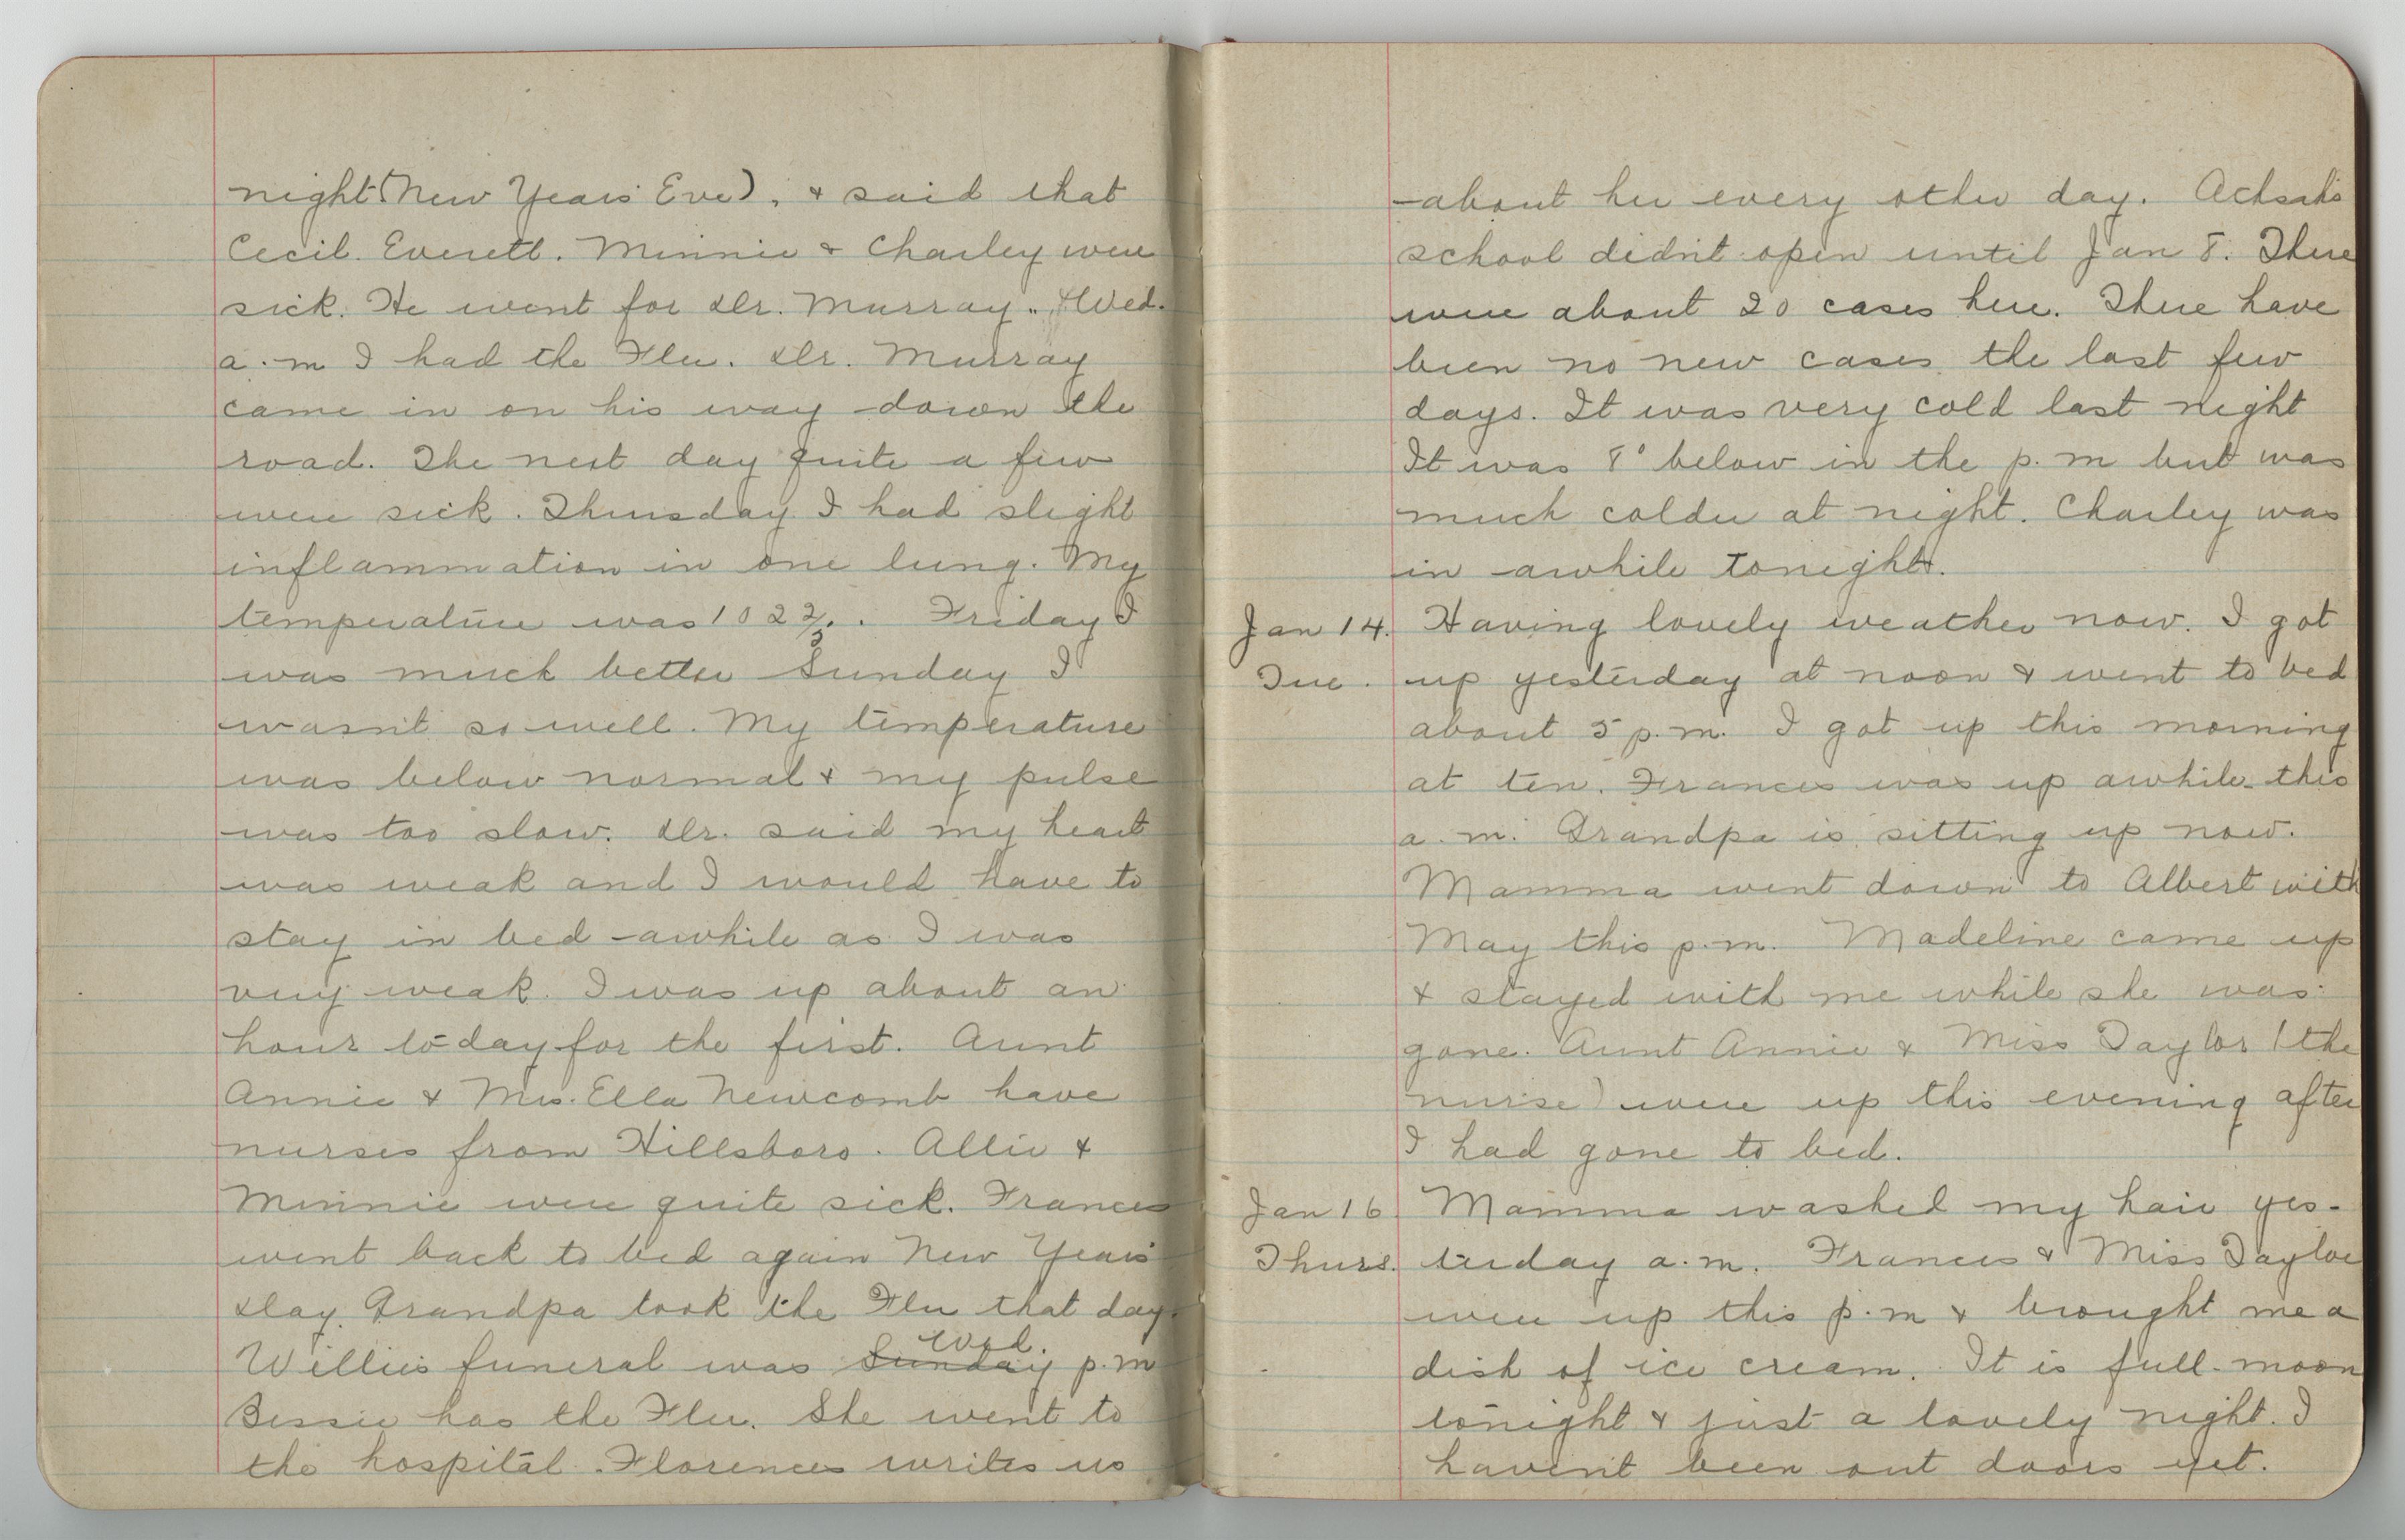 night (New Years Eve), & said that
Cecil. Everett. Minnie & Charley were
sick. He went for Dr. Murray.. Wed.
a.m I had the Flu. Dr. Murray
came in on his way down the
road. The next day quite a few
were sick. Thursday I had slight
inflammation in one lung. My
temperature was 102 2/3. Friday I
was much better Sunday I
wasn't so well. My temperature
was below normal & my pulse
was too slow. Dr. said my heart
was weak and I would have to
stay in bed awhile as I was
very weak. I was up about an
hour to-day for the first. Aunt
Annie & Mrs. Ella Newcomb have
nurses from Hillsboro. Allie &
Minnie were quite sick. Frances
went back to bed again New Years
Day. Grandpa took the Flu that day.
Wed.
Willie's funeral was Sunday p.m
Bessie has the Flu. She went to
the hospital. Florences writes us
about her every other day. Achsah's
school didn't open until Jan 8. There
were about 20 cases here. There have
been no new cases the last few
days. It was very cold last night
It was 8° below in the p.m but was
much colder at night. Charley was
in awhile tonight.
Jan 14. Having lovely weather now. I got
Tue. up yesterday at noon & went to bed
about 5 p.m. I got up this morning
at ten. Frances was up awhile this
a.m. Grandpa is sitting up now.
Mamma went down to Albert with
May this p.m. Madeline came up
& stayed with me while she was
gone. Aunt Annie & Miss Taylor (the
nurse) were up this evening after
I had gone to bed.
Jan 16 Mamma washed my hair yes-
Thurs. terday a.m. Frances & Miss Taylor
were up this p.m & brought me a
dish of ice cream. It is full moon
tonight & just a lovely night. I
haven't been out doors yet.